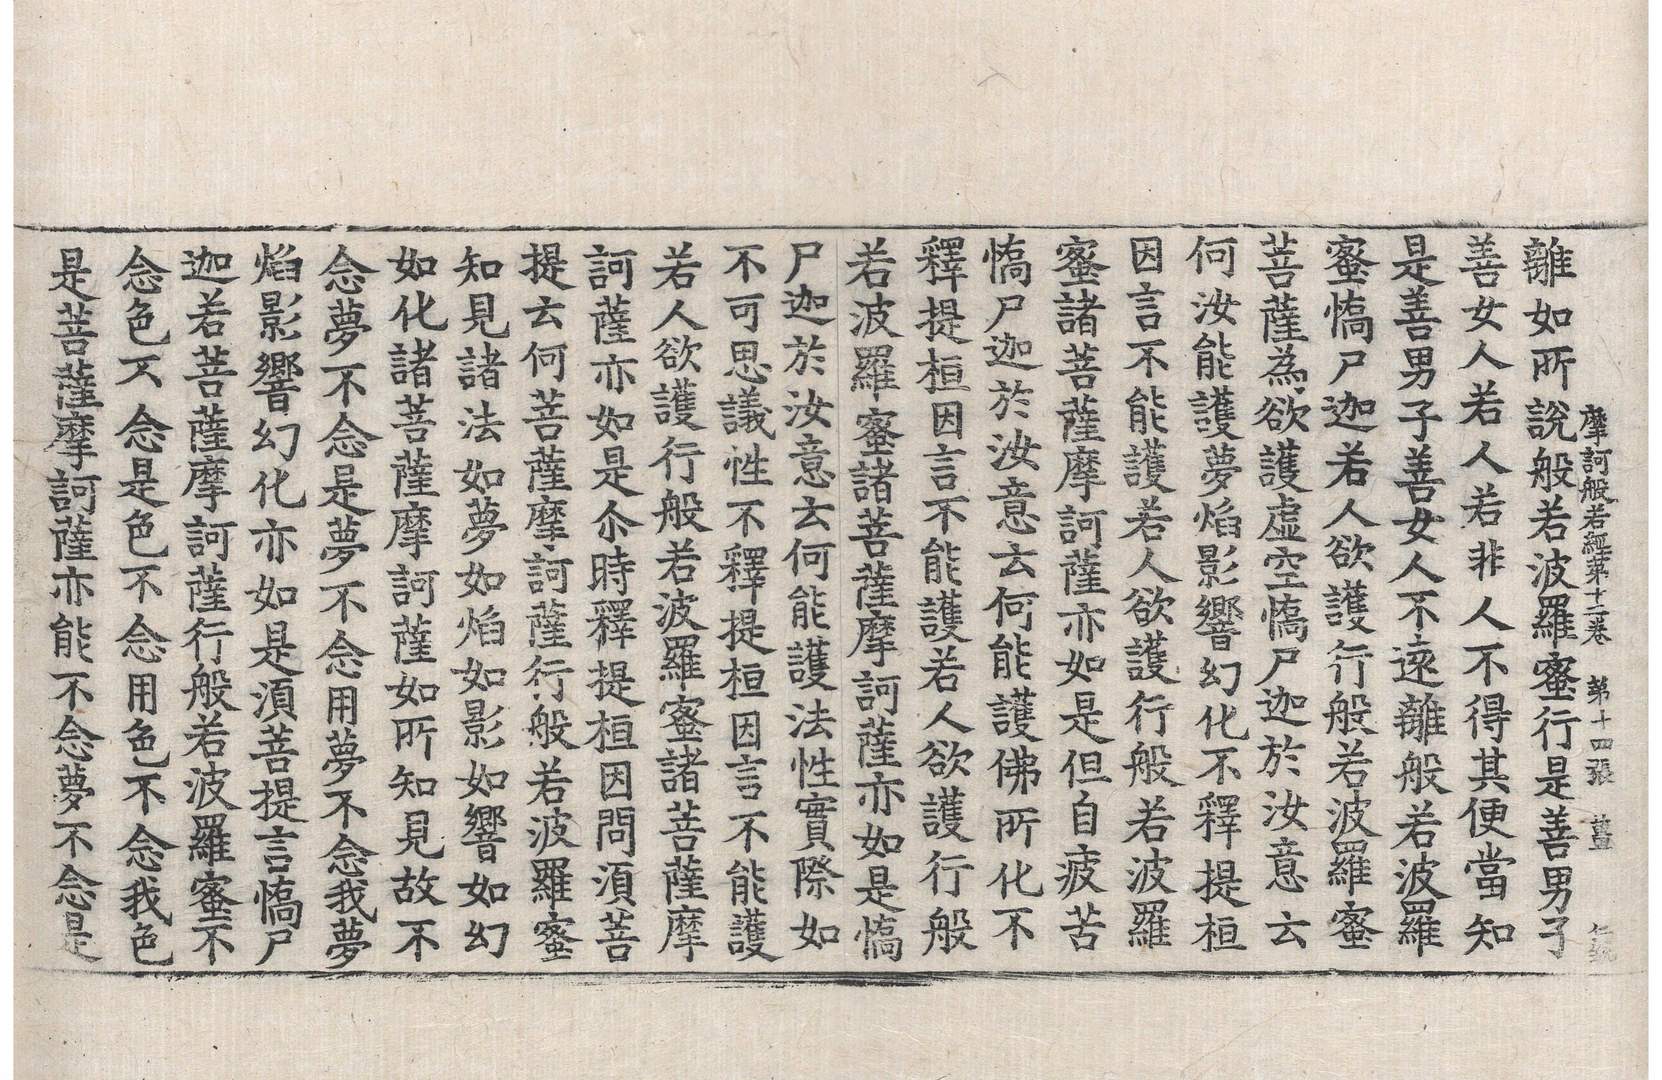 摩訶般若經苐十二卷　苐十四張　薑
離如所說般若波羅蜜行是善男子
善女人若人若非人不得其便當知
是善男子善女人不遠離般若波羅
蜜憍尸迦若人欲護行般若波羅蜜
菩薩為欲護虛空憍尸迦於汝意云
何汝能護夢焰影響幻化不釋提桓
因言不能護若人欲護行般若波羅
蜜諸菩薩摩訶薩亦如是但自疲苦
憍尸迦於汝意云何能護佛所化不
釋提桓因言不能護若人欲護行般
若波羅蜜諸菩薩摩訶薩亦如是憍
尸迦於汝意云何能護法性實際如
不可思議性不釋提桓因言不能護
若人欲護行般若波羅蜜諸菩薩摩
訶薩亦如是尒時釋提桓因問湏菩
提云何菩薩摩訶薩行般若波羅蜜
知見諸法如夢如焰如影如響如幻
如化諸菩薩摩訶薩如所知見故不
念夢不念是夢不念用夢不念我夢
焰影響幻化亦如是湏菩提言憍尸
迦若菩薩摩訶薩行般若波羅蜜不
念色不念是色不念用色不念我色
是菩薩摩訶薩亦能不念夢不念是